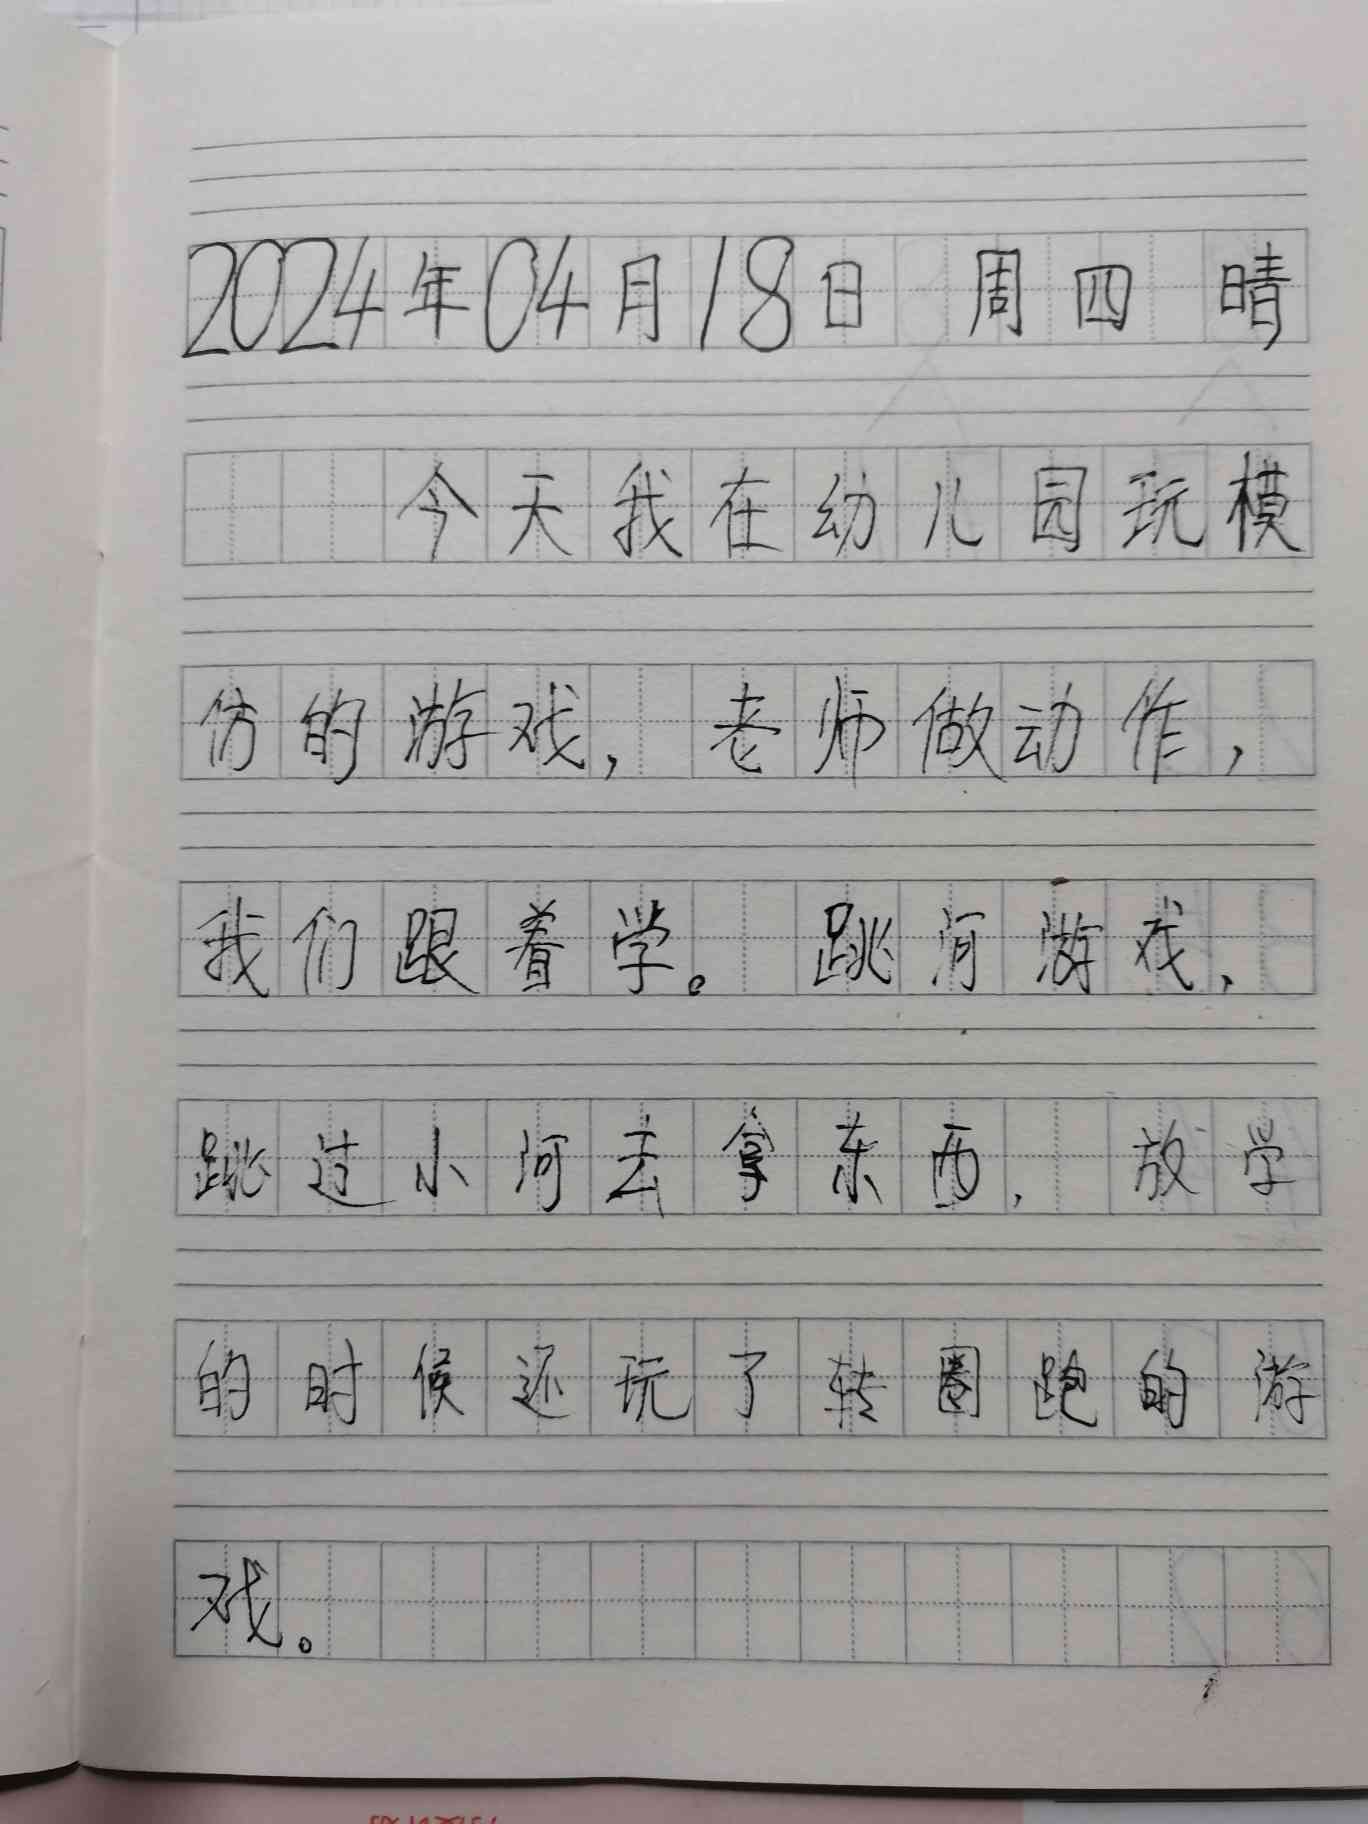 2024年04月18日 周四 晴
今天我在幼儿园玩模
仿的游戏，老师做动作，
我们跟着学。跳河游戏，
跳过小河去拿东西，放学
的时候还玩了转圈跑的游
戏。